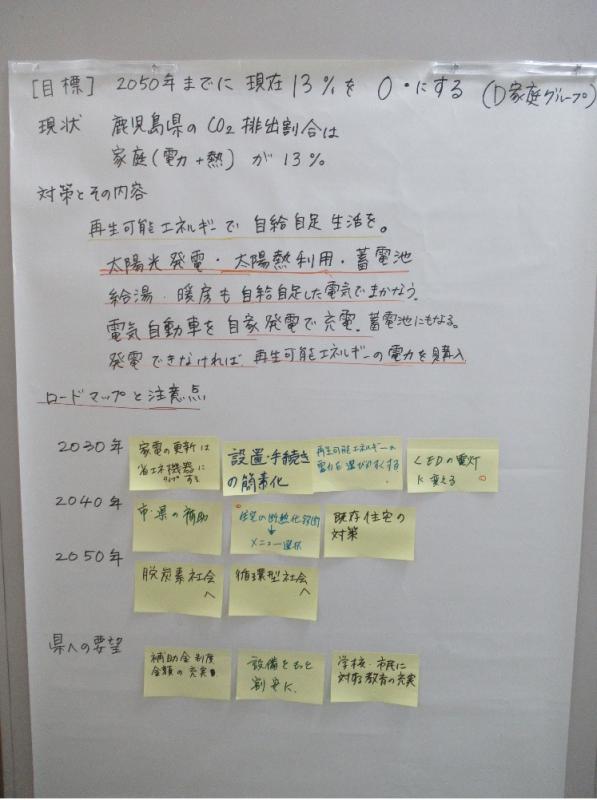 [目標] 2050年までに 現在13%を 0・にする (D家庭グループ)
現状 鹿児島県のCO2排出割合は
家庭(電力+熱) が13%
対策とその内容
再生可能エネルギーで 自給自足 生活を。
太陽光発電・太陽熱利用・蓄電池
給湯・暖房も自給自足した電気でまかなう。
電気自動車を自家発電で充電。蓄電池にもなる。
発電できなければ、再生可能エネルギーの電力を購入
ロードマップと注意点
2030年
家電の更新は
省エネ機器に
する
設置・手続き
の簡素化
再生可能エネルギーの
電力を選びやすくする
LEDの電灯
に変える
2040年
市・県の補助
住宅の断熱化診断
↓
メニュー選択
既存住宅の
対策
2050年
脱炭素社会
へ
循環型社会
へ
県への要望
補助金制度
金額の充実
設備をもっと
割安に
学校・市民に
対する教育の充実